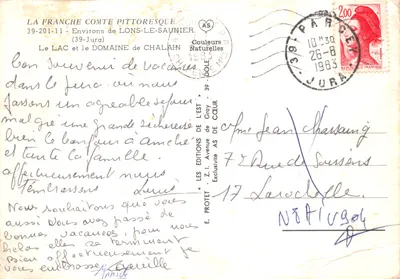 LA FRANCHE COMTÉ PITTORESQUE
39-201-11 - Environs de LONS-LE-SAUNIER
(39-Jura)
Le LAC et le DOMAINE de CHALAIN
AS
Couleurs
Naturelles
Bon Souvenir de vacances
dans le Jura où nous
passons un agréable séjour
malgré une grande sécheresse
bien le bonjour à
et toute la famille.
affectueusement nous
t'embrassons
Nous souhaitons que vous
aussi vous avez passé de
bonnes vacances, pour nous
hélas elles se terminent
bien affectueusement je
vous embrasse
E. PROTET - LES EDITIONS DE L'EST
Z. I. Avenue de Gray - 39 DOLE
Exclusivité AS DE CŒUR
2,00
PARCEY
(39)
26-8
1983
JURA
Mme Jean
7 Rue
17 Larochelle